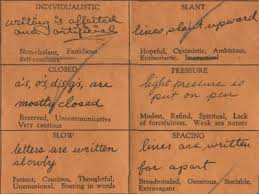 INDIVIDUALISTIC
writing is affected
and artificial
Non-chalant, Fastidious
Self-confident
SLANT
lines slant upward
Hopeful, Optimistic, Ambitious,
Enthusiastic,
CLOSED
a's, o's, d's, g's, are
mostly closed
Reserved, Uncommunicative
Very cautious
PRESSURE
light pressure is
put on pen
Modest, Refind, Spiritual, Lack
of forcefulness, Weak sex nature
SLOW
letters are written
slowly
Patient, Cautious, Thoughtful,
Unemotional, Sparing in words
SPACING
lines are written
far apart
Broadminded, Generous, Sociable,
Extravagant